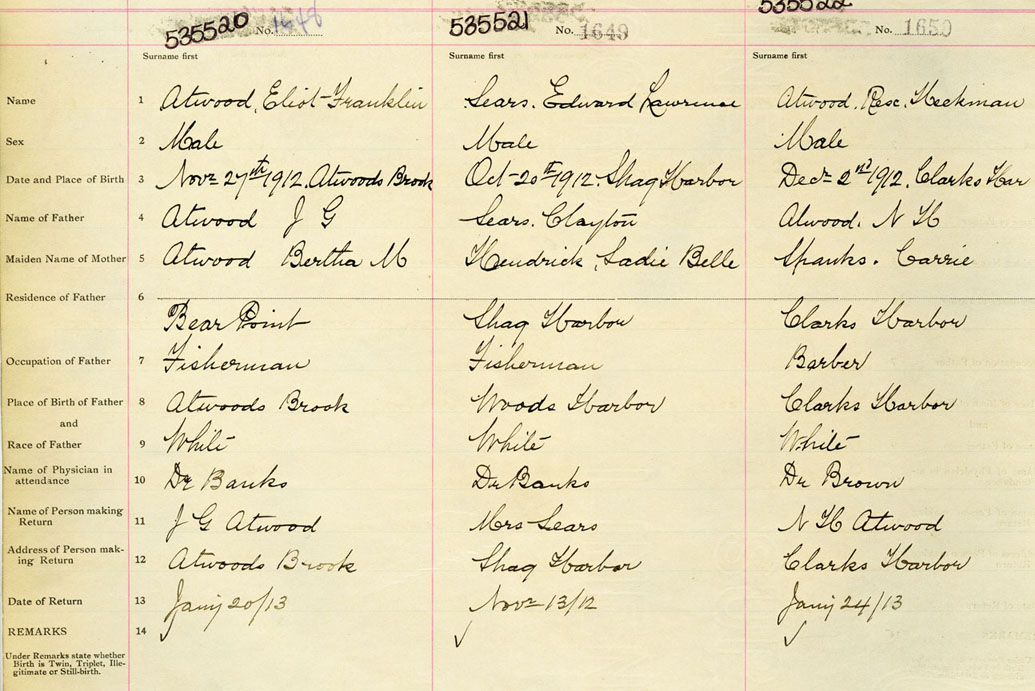 535520 No. 1648 535521 No. 1649 535522 No. 1650
Surname first Surname first Surname first
Name 1 Atwood, Eliot-Franklin Sears. Edward Lawrence Atwood. Heckman
Sex 2 Male Male Male
Date and Place of Birth 3 Novr 27th 1912. Atwoods Brook Oct-20th 1912. Shag Harbor Decr 2nd 1912. Clarks Har
Name of Father 4 Atwood J G Sears. Clayton Atwood. N H
Maiden Name of Mother 5 Atwood Bertha M Kendrick, Sadie Belle Spanks. Carrie
Residence of Father 6
Bear Point Shag Harbor Clarks Harbor
Occupation of Father 7 Fisherman Fisherman Barber
Place of Birth of Father 8 Atwoods Brook Woods Harbor Clarks Harbor
and
Race of Father 9 White White White
Name of Physician in
attendance 10 Dr Banks Dr Banks Dr Brown
Name of Person making
Return 11 J G Atwood Mrs Sears N H Atwood
Address of Person mak-
ing Return 12 Atwoods Brook Shag Harbor Clarks Harbor
Date of Return 13 Jany 20/13 Novr 13/12 Jany 24/13
REMARKS 14
Under Remarks state whether
Birth is Twin, Triplet, Ille-
gitimate or Still-birth.